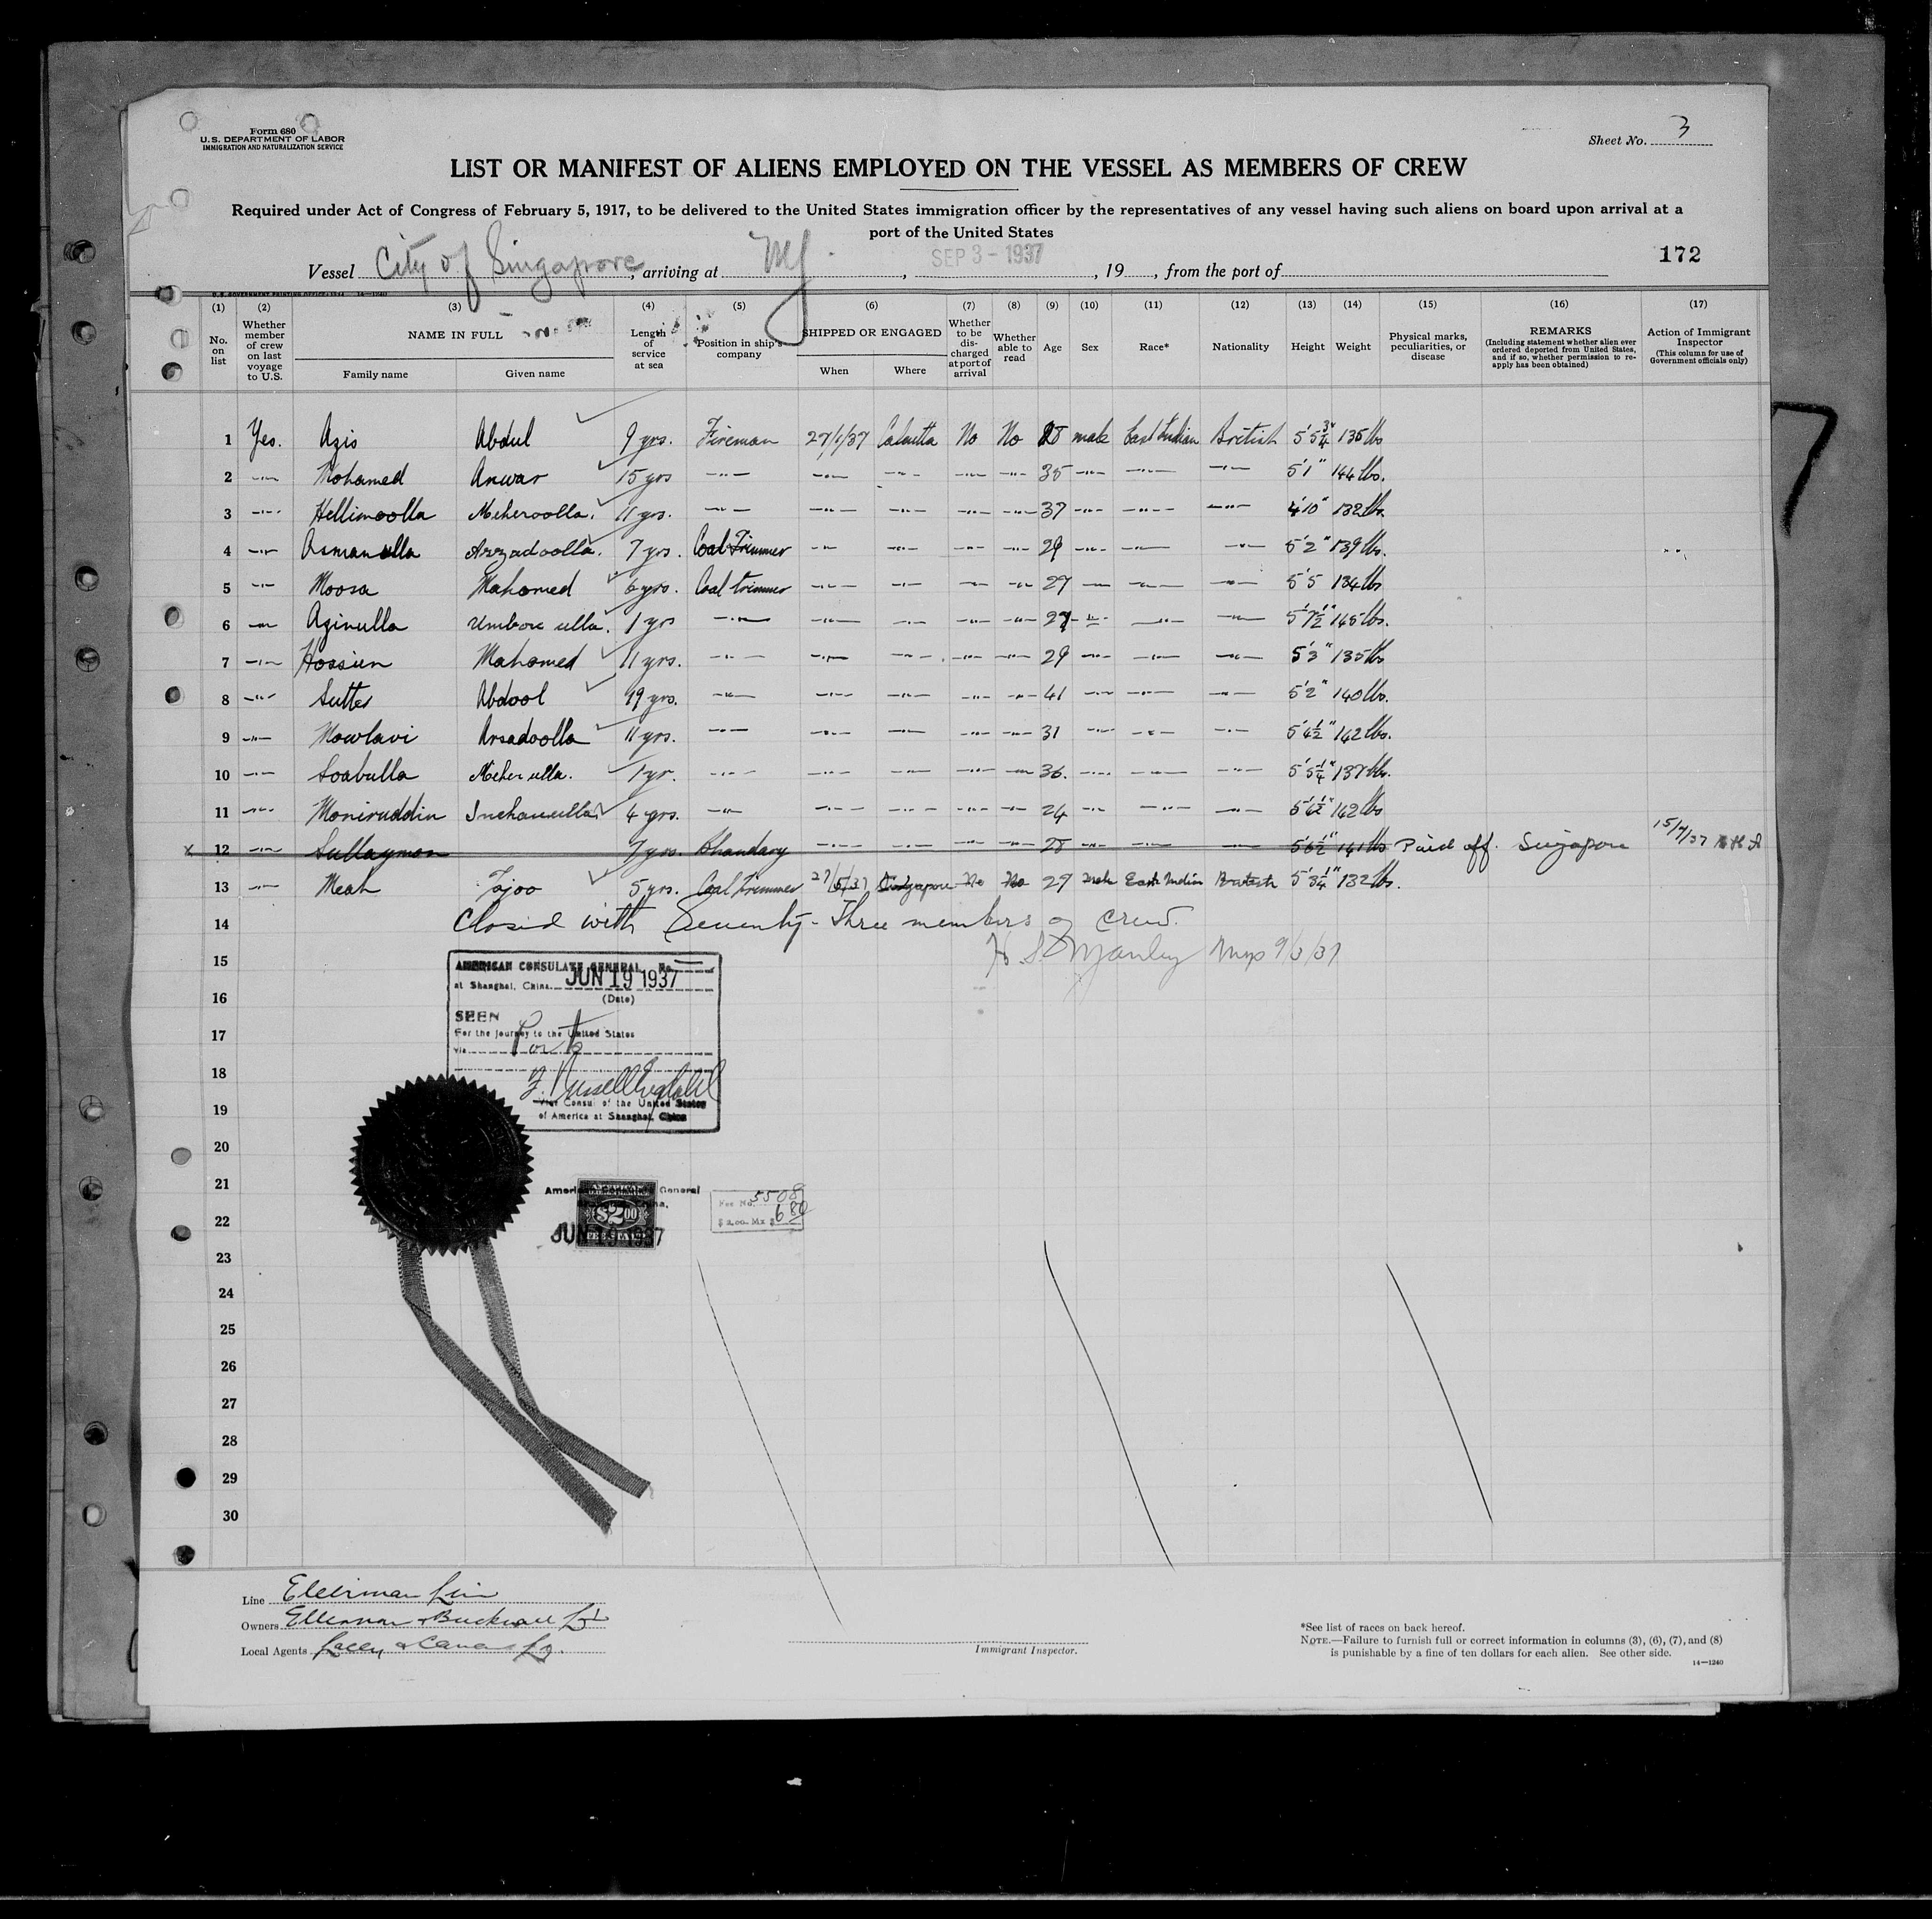 Form 680
U.S. DEPARTMENT OF LABOR
IMMIGRATION AND NATURALIZATION SERVICE
Sheet No. 3
LIST OR MANIFEST OF ALIENS EMPLOYED ON THE VESSEL AS MEMBERS OF CREW
Required under Act of Congress of February 5, 1917, to be delivered to the United States immigration officer by the representatives of any vessel having such aliens on board upon arrival at a
port of the United States
172
Vessel City of Singapore, arriving at NY, SEP 3 - 1937, 19 , from the port of
(1) (2) (3) (4) (5) (6) (7) (8) (9) (10) (11) (12) (13) (14) (15) (16) (17)
No. on list
Whether member of crew on last voyage to U.S.
NAME IN FULL
Family name
Given name
Length of service at sea
Position in ship's company
SHIPPED OR ENGAGED
When
Where
Whether to be discharged at port of arrival
Whether able to read
Age
Sex
Race*
Nationality
Height
Weight
Physical marks, peculiarities, or disease
REMARKS
(Including statement whether alien ever ordered deported from United States, and if so, whether permission to re-apply has been obtained)
Action of Immigrant Inspector
(This column for use of Government officials only)
1 Yes. Azis Abdul 9 yrs. Fireman 27/1/37 Calcutta No No 28 male East Indian British 5'5¾" 135 lbs
2 -"- Mohamed Anwar 15 yrs -"- -"- -"- -"- -"- 35 -"- -"- -"- 5'1" 144 lbs.
3 -"- Hellimoolla Meheroolla. 11 yrs. -"- -"- -"- -"- -"- 37 -"- -"- -"- 4'10" 132 lbs
4 -"- Asmanulla Arzadoolla. 7 yrs. Coal Trimmer -"- -"- -"- -"- 29 -"- -"- -"- 5'2" 139 lbs.
5 -"- Moosa Mahomed 6 yrs. Coal trimmer -"- -"- -"- -"- 27 -"- -"- -"- 5'5 134 lbs
6 -"- Azinulla ulla. 1 yrs -"- -"- -"- -"- -"- 27 -"- -"- -"- 5'7½" 145 lbs.
7 -"- Hossien Mahomed 11 yrs. -"- -"- -"- -"- -"- 29 -"- -"- -"- 5'3" 135 lbs
8 -"- Sutter Abdool 19 yrs. -"- -"- -"- -"- -"- 41 -"- -"- -"- 5'2" 140 lbs.
9 -"- Mowlavi Arsadoolla 11 yrs. -"- -"- -"- -"- -"- 31 -"- -"- -"- 5'4½" 142 lbs.
10 -"- Soabulla Meher ulla. 1 yr. -"- -"- -"- -"- -"- 36. -"- -"- -"- 5'5¼" 137 lbs.
11 -"- Moniruddin 4 yrs. -"- -"- -"- -"- -"- 24 -"- -"- -"- 5'6½" 142 lbs
x 12 -"- Sullaymon 7 yrs. Bhandary -"- -"- -"- -"- 28 -"- -"- -"- 5'6½" 141 lbs Paid off. Singapore 15/7/37
13 -"- Meah Tojoo 5 yrs. Coal Trimmer 27/5/37 Singapore No No 27 male East Indian British 5'3¼" 132 lbs.
14 Closed with Seventy-Three members of crew.
15 H. S. Manley 9/3/37
AMERICAN CONSULATE GENERAL No.
at Shanghai, China. JUN 19 1937
(Date)
16
SEEN
17 For the journey to the United States
via Ports
18
Vice Consul of the United States
19 of America at Shanghai, China
20
21 American General
$2.00
Fee No. 5508
22 $2.00 Mx $ 6.80
FEE STAMP
JUN 19 1937
23
24
25
26
27
28
29
30
Line Ellerman Line
Owners Ellerman & Bucknall Ld
Local Agents
Immigrant Inspector.
*See list of races on back hereof.
NOTE.—Failure to furnish full or correct information in columns (3), (6), (7), and (8)
is punishable by a fine of ten dollars for each alien. See other side.
14—1240